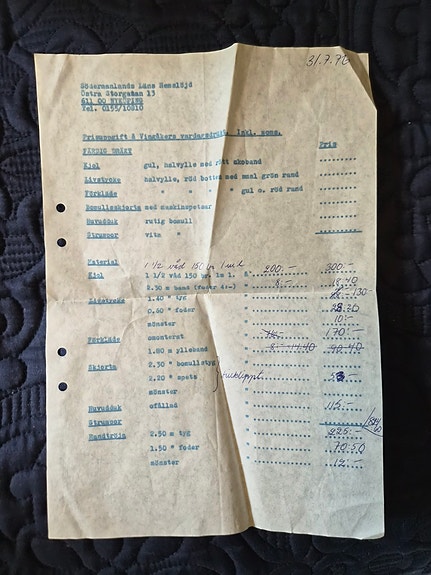 31.7.
Södermanlands Läns Hemslöjd
Östra Storgatan 13
611 00 NYKÖPING
Tel. 0155/10810
Prisuppgift å Vingåkers vardagsdräkt. Inkl. moms.
FÄRDIG DRÄKT Pris
Kjol gul, halvylle med rött skoband ........
Livstycke halvylle, röd botten med smal grön rand ........
Förkläde " " " " gul o. röd rand ........
Bomullsskjorta med maskinspetsar ........
Huvudduk rutig bomull ........
Strumpor vita " ........
Material 1 1/2 våd 150 br. 200:- 300:-
Kjol 1 1/2 våd 150 br. 1m l. á 8:- 18.40
2.30 m band (foder 4:-) " 130
Livstycke 1.40 " tyg "
0.60 " foder "
mönster " 10:-
Förkläde omonterat " 170:-
1.80 m ylleband " 8:- 14.40
Skjorta 2.30 " bomullstyg "
2,20 " spets "
mönster "
Huvudduk ofållad " 115:-
Strumpor "
Bandtröja 2.50 m tyg " 225:-
1.50 " foder " 70:50
mönster " 12:-